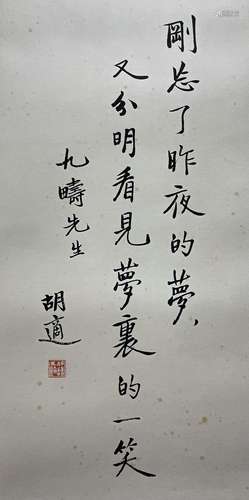 剛忘了昨夜的夢，
又分明看見夢裏的一笑
九疇先生
胡適